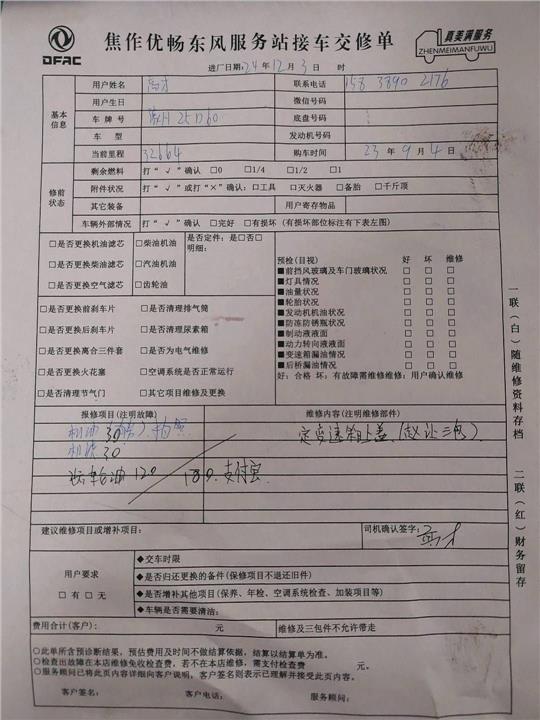 DFAC
焦作优畅东风服务站接车交修单
真美满服务
ZHENMEIMANFUWU
进厂日期:24年12月3日 时
基本信息
用户姓名
联系电话 158 3890 2176
用户生日
微信号码
车牌号 25D60
底盘号码
车型
发动机号码
当前里程 32664
购车时间 23年9月4日
修前状态
剩余燃料 打“√”确认 □0 □1/4 □1/2 □1
附件状况 打“√”或打“×”确认:□工具 □灭火器 □备胎 □千斤顶
其它装备
用户寄存物品
车辆外部情况 打“√”确认 □完好 □有损坏(有损坏部位标注有下表左图)
□是否更换机油滤芯 □柴油机油
□是否更换柴油滤芯 □汽油机油
□是否更换空气滤芯 □齿轮油
是否定件:是□否□
明细:
□是否更换前刹车片 □是否清理排气筒
□是否更换后刹车片 □是否清理尿素箱
□是否更换离合三件套 □是否为电气维修
□是否更换火花塞 □空调系统是否正常运行
□是否清理节气门 □其它项目维修及更换
预检(目视) 好 坏 维修
■前挡风玻璃及车门玻璃状况 □ □ □
■灯具情况 □ □ □
■油量状况 □ □ □
■轮胎状况 □ □ □
■发动机机油状况 □ □ □
■防冻防锈瓶状况 □ □ □
■制动液液面 □ □ □
■动力转向液液面 □ □ □
■变速箱漏油情况 □ □ □
■后桥漏油情况 □ □ □
好:合格 坏:有故障需维修维修:用户确认维修
报修项目(注明故障)
维修内容(注明维修部件)
机油 30
机滤 30
定变速箱上盖
齿轮油 120
180.支付宝
建议维修项目或增补项目:
司机确认签字:
用户要求
□有 □无
◆交车时限
◆是否归还更换的备件(保修项目不退还旧件)
◆是否增补其他项目(保养、年检、空调系统检查、加装项目等)
◆车辆是否需要清油:
费用合计(客户): 元
维修及三包件不允许带走
○此单所含预诊断结果,预估费用及时间不做结算依据,结算以结算单为准。
○检查出故障在本店维修免收检查费,若不在本店维修,需支付检查费 元。
○服务顾问已将此页内容详细向客户说明,客户签名则表示已理解并接受此页内容。
客户签名: 客户电话: 服务顾问:
一联(白)随维修资料存档
二联(红)财务留存